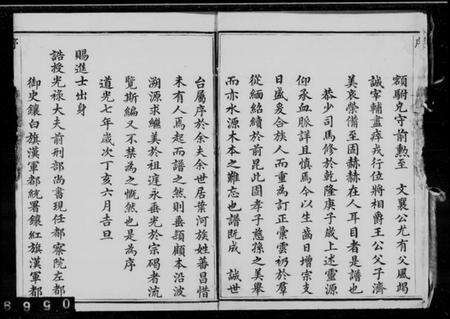 額駙克守前勲至　文襄公尤有父風竭
誠宰輔盡瘁戎行位將相爵王公父子濟
美哀榮備至固赫赫在人耳目者是譜也
恭少司馬修於乾隆庚子歲上述靈源
仰承血脈詳且慎焉今以生齒日增宗支
日盛爰合族人而重為訂正彙雲礽於羣
從緬紹績於前昆此固孝子慈孫之美舉
而亦水源木本之難忘也譜既成　誠世
台屬序於余夫余世居葉河族姓蕃昌惜
未有人焉起而譜之然則垂頴顧本沿波
溯源求繼美於祖遠永垂光於宗祊者流
覽斯編又不禁為之慨然也是為序
道光七年歲次丁亥六月吉旦
賜進士出身
誥授光祿大夫前刑部尚書現任都察院左都
御史鑲白旗漢軍都統署鑲紅旗漢軍都
05968